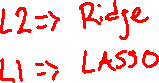 L2=> Ridge
L1=> LASSO